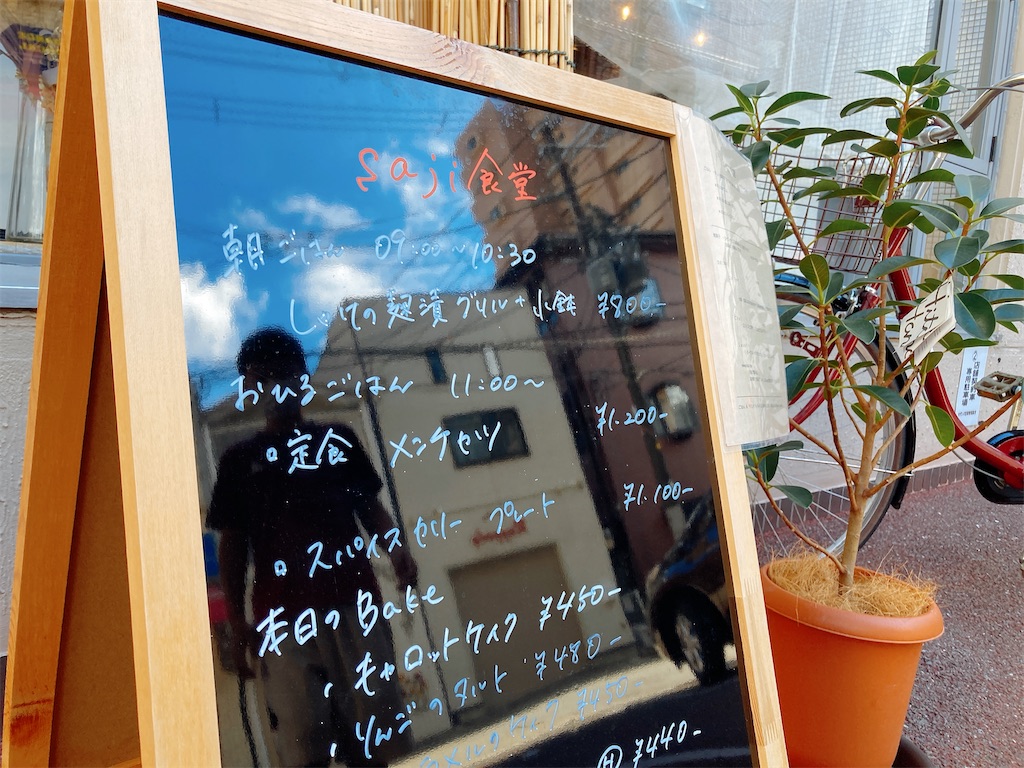 Saji食堂
朝ごはん 09:00~10:30
しゃけの麹漬グリル+小鉢 ¥800-
おひるごはん 11:00~
定食 メンチカツ ¥1.200-
スパイスカリー プレート ¥1.100-
本日のBake
・キャロットケイク ¥450-
・りんごのタルト ¥480-
ケイク ¥450-
Ⓗ ¥440-
店舗契約車
専用駐車場